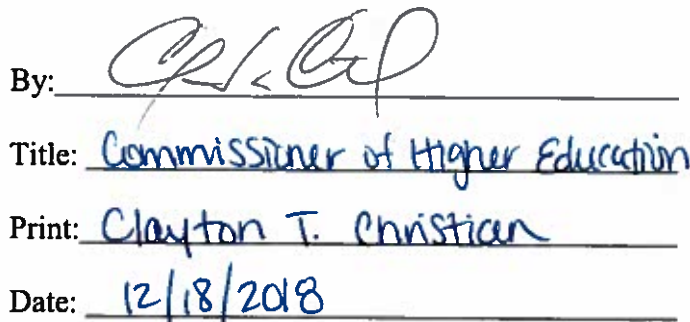 By:
Title: Commissioner of Higher Education
Print: Clayton T. Christian
Date: 12/18/2018